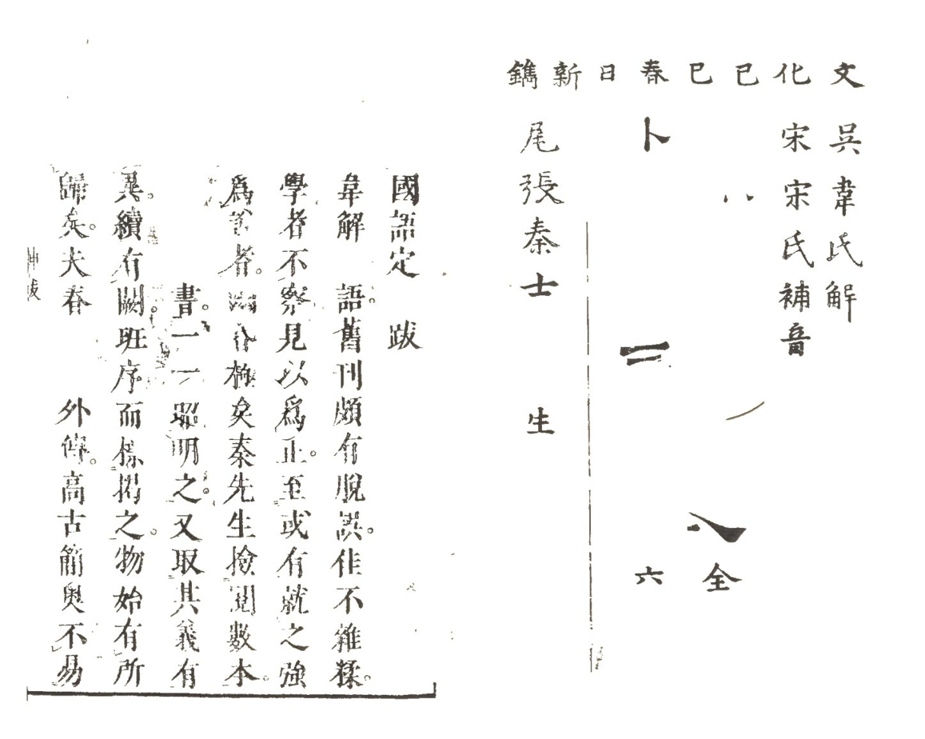 文化己巳春日新鐫
吳韋氏解
宋宋氏補音
全
六
尾張秦士 生
國語定 跋
韋解 語。舊刊頗有脫誤。隹不雜糅。
學者不察見以爲正。至或有就之強
爲 者。 矣秦先生撿閱數本。
書。一一昭明之。又取其義有
異。續有闕班序。而標揭之。物始有所
歸矣。夫春 外傳。高古簡奧不易